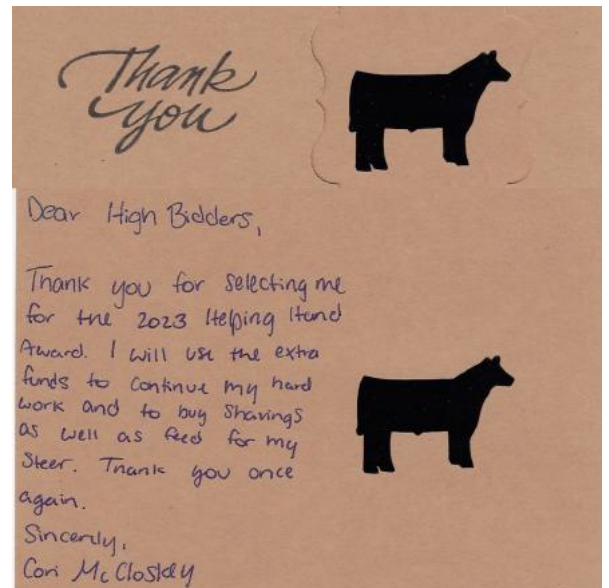 Thank
you
Dear High Bidders,
Thank you for selecting me
for the 2023 Helping Hand
Award. I will use the extra
funds to continue my hard
work and to buy shavings
as well as feed for my
Steer. Thank you once
again.
Sincerly,
Cori McCloskey